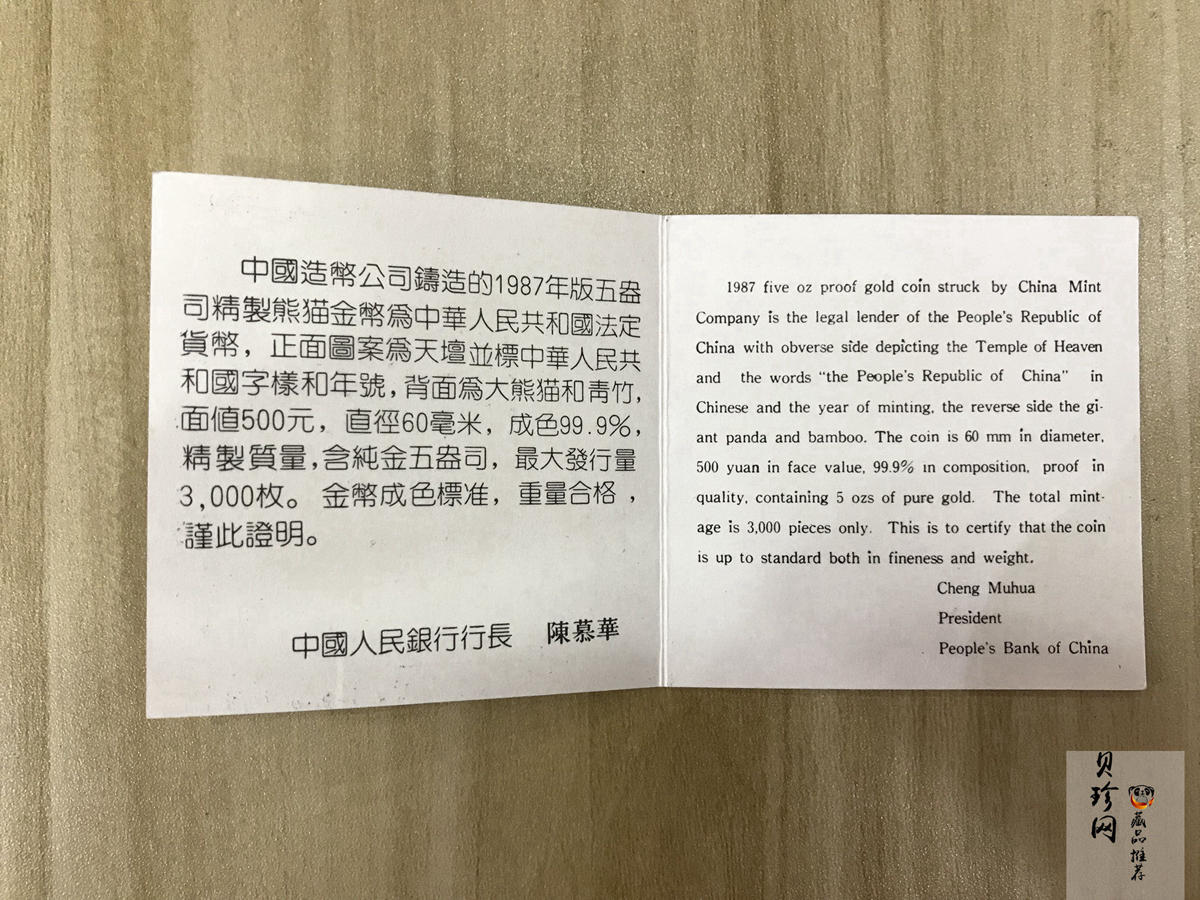 中國造幣公司鑄造的1987年版五盎
司精製熊猫金幣爲中華人民共和國法定
貨幣，正面圖案爲天壇並標中華人民共
和國字樣和年號，背面爲大熊猫和靑竹，
面値500元，直徑60毫米，成色99.9%，
精製質量，含純金五盎司，最大發行量
3,000枚。金幣成色標准，重量合格，
謹此證明。
中國人民銀行行長 陳慕華
1987 five oz proof gold coin struck by China Mint
Company is the legal lender of the People's Republic of
China with obverse side depicting the Temple of Heaven
and the words "the People's Republic of China" in
Chinese and the year of minting, the reverse side the gi-
ant panda and bamboo. The coin is 60 mm in diameter,
500 yuan in face value, 99.9% in composition, proof in
quality, containing 5 ozs of pure gold. The total mint-
age is 3,000 pieces only. This is to certify that the coin
is up to standard both in fineness and weight.
Cheng Muhua
President
People's Bank of China
贝珍网
藏品推荐